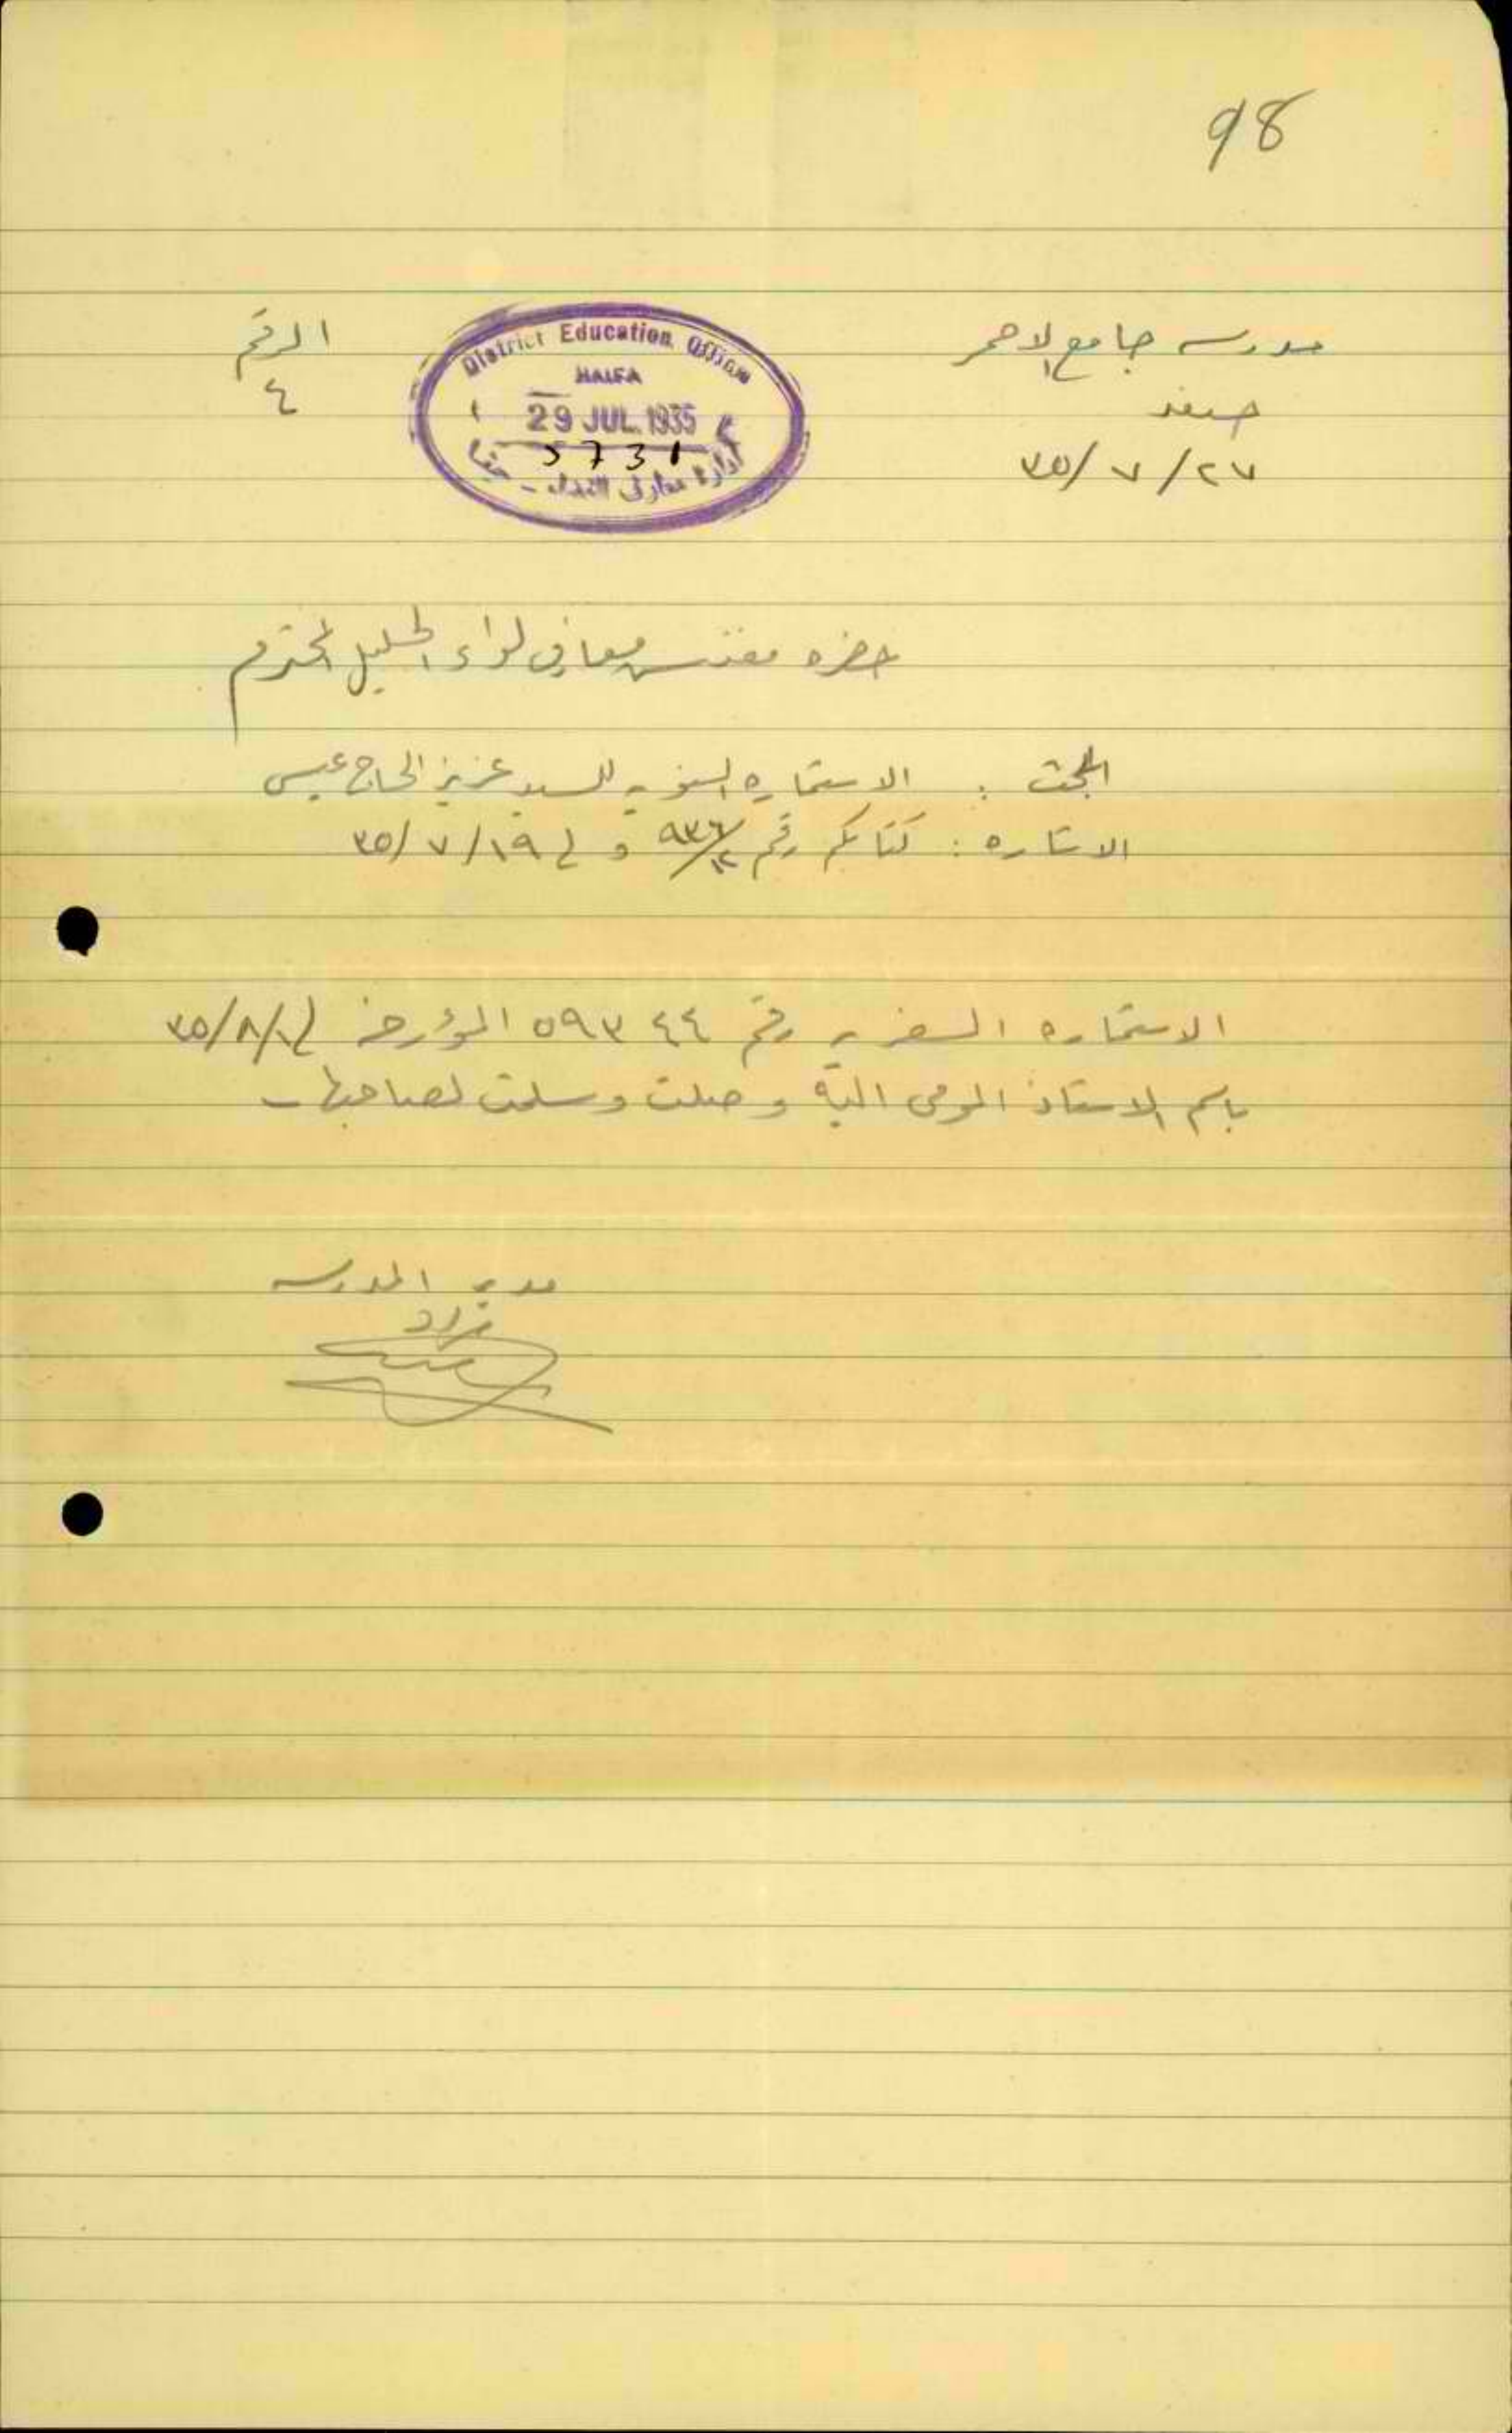 98
مدرسه جامع الاحمر
صفد
٢٧/٧/٣٥
الرقم
٤
District Education Office
HAIFA
29 JUL. 1935
5731
ادارة معارف اللواء - حيفا
حضره مفتش معارف لواء الجليل المحترم
البحث : الاستماره السفريه للسيد عزيز الحاج عيسى
الاشاره : كتابكم رقم ٩٣٦/١٢ و في ١٩/٧/٣٥
الاستماره السفريه رقم ٥٩٣٤٤ المؤرخه في ١/٨/٣٥
باسم الاستاذ المومى اليه وصلت وسلمت لصاحبها -
مدير المدرسه